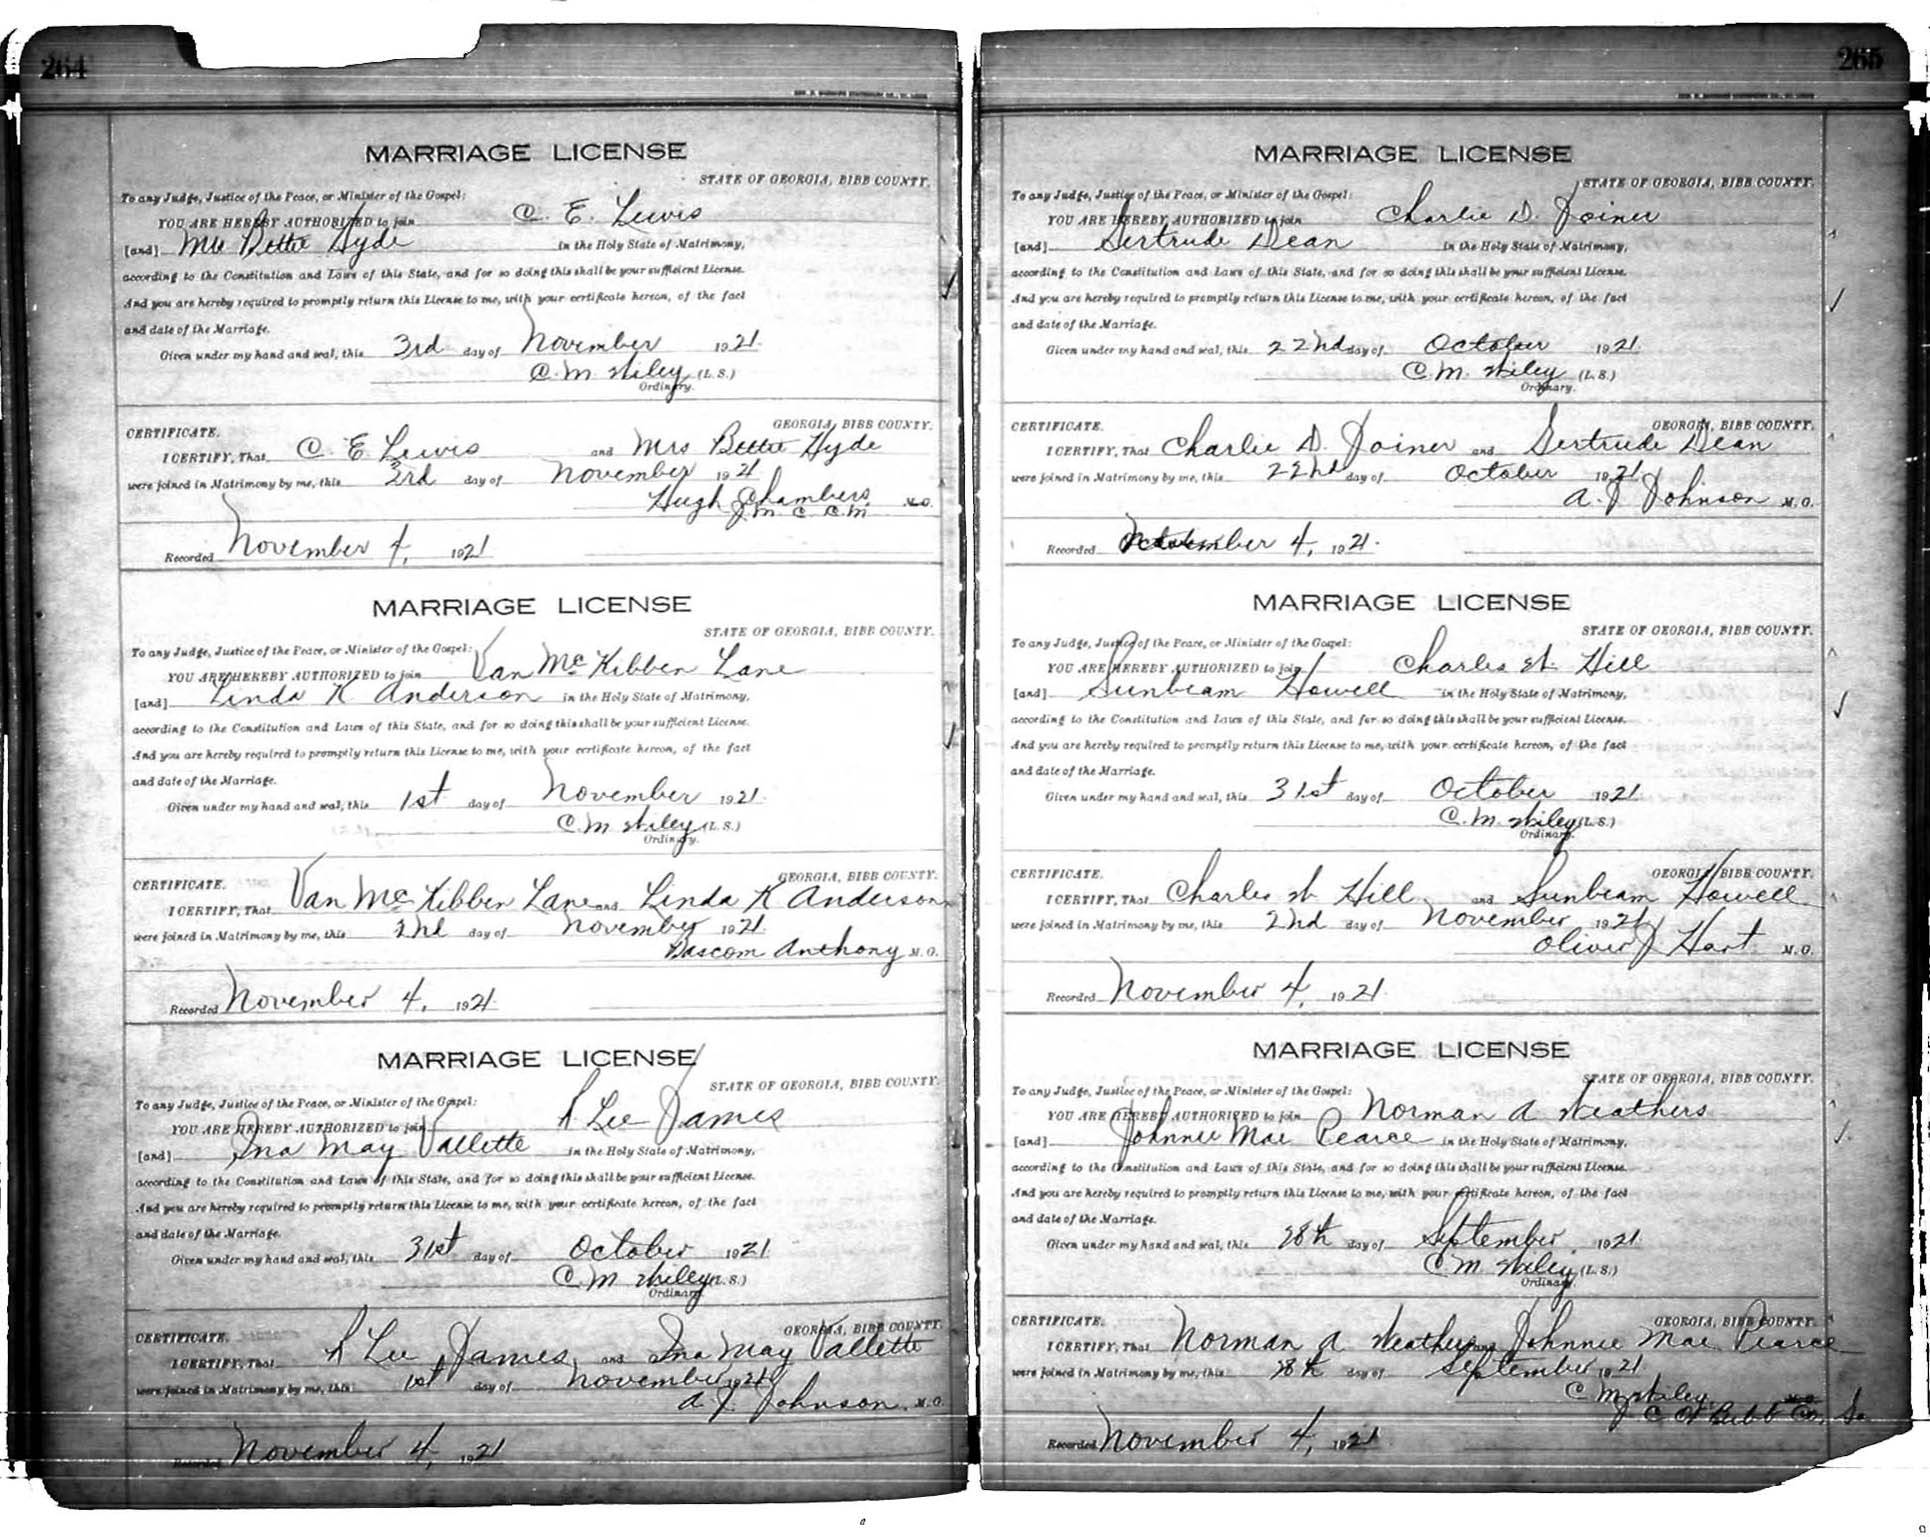 264
MARRIAGE LICENSE
STATE OF GEORGIA, BIBB COUNTY.
To any Judge, Justice of the Peace, or Minister of the Gospel:
YOU ARE HEREBY AUTHORIZED to join C. E. Lewis
[and] Mrs Bettie Hyde in the Holy State of Matrimony,
according to the Constitution and Laws of this State, and for so doing this shall be your sufficient License.
And you are hereby required to promptly return this License to me, with your certificate hereon, of the fact
and date of the Marriage.
Given under my hand and seal, this 3rd day of November 1921
C. M. Wiley (L.S.)
Ordinary.
GEORGIA, BIBB COUNTY.
CERTIFICATE.
I CERTIFY, That C. E. Lewis and Mrs Bettie Hyde
were joined in Matrimony by me, this 3rd day of November 1921
Hugh Chambers M.G.
J. M. C. C. M
Recorded November 4, 1921
MARRIAGE LICENSE
STATE OF GEORGIA, BIBB COUNTY.
To any Judge, Justice of the Peace, or Minister of the Gospel:
YOU ARE HEREBY AUTHORIZED to join Van McKibben Lane
[and] Linda K Anderson in the Holy State of Matrimony,
according to the Constitution and Laws of this State, and for so doing this shall be your sufficient License.
And you are hereby required to promptly return this License to me, with your certificate hereon, of the fact
and date of the Marriage.
Given under my hand and seal, this 1st day of November 1921
C. M. Wiley (L.S.)
Ordinary.
GEORGIA, BIBB COUNTY.
CERTIFICATE.
I CERTIFY, That Van McKibben Lane and Linda K Anderson
were joined in Matrimony by me, this 2nd day of November 1921
Bascom Anthony M.G.
Recorded November 4, 1921
MARRIAGE LICENSE
STATE OF GEORGIA, BIBB COUNTY.
To any Judge, Justice of the Peace, or Minister of the Gospel:
YOU ARE HEREBY AUTHORIZED to join Lee James
[and] Ina May Vallette in the Holy State of Matrimony,
according to the Constitution and Laws of this State, and for so doing this shall be your sufficient License.
And you are hereby required to promptly return this License to me, with your certificate hereon, of the fact
and date of the Marriage.
Given under my hand and seal, this 31st day of October 1921
C. M. Wiley (L.S.)
Ordinary.
GEORGIA, BIBB COUNTY.
CERTIFICATE.
I CERTIFY, That Lee James and Ina May Vallette
were joined in Matrimony by me, this 1st day of November 1921
A. J. Johnson M.G.
Recorded November 4, 1921
265
MARRIAGE LICENSE
STATE OF GEORGIA, BIBB COUNTY.
To any Judge, Justice of the Peace, or Minister of the Gospel:
YOU ARE HEREBY AUTHORIZED to join Charlie D. Joiner
[and] Gertrude Dean in the Holy State of Matrimony,
according to the Constitution and Laws of this State, and for so doing this shall be your sufficient License.
And you are hereby required to promptly return this License to me, with your certificate hereon, of the fact
and date of the Marriage.
Given under my hand and seal, this 22nd day of October 1921
C. M. Wiley (L.S.)
Ordinary.
GEORGIA, BIBB COUNTY.
CERTIFICATE.
I CERTIFY, That Charlie D. Joiner and Gertrude Dean
were joined in Matrimony by me, this 22nd day of October 1921
A. J Johnson M.G.
Recorded November 4, 1921.
MARRIAGE LICENSE
STATE OF GEORGIA, BIBB COUNTY.
To any Judge, Justice of the Peace, or Minister of the Gospel:
YOU ARE HEREBY AUTHORIZED to join Charles W. Hill
[and] Sunbeam Howell in the Holy State of Matrimony,
according to the Constitution and Laws of this State, and for so doing this shall be your sufficient License.
And you are hereby required to promptly return this License to me, with your certificate hereon, of the fact
and date of the Marriage.
Given under my hand and seal, this 31st day of October 1921
C. M. Wiley (L.S.)
Ordinary.
GEORGIA, BIBB COUNTY.
CERTIFICATE.
I CERTIFY, That Charles W. Hill and Sunbeam Howell
were joined in Matrimony by me, this 2nd day of November 1921
Oliver J Hart M.G.
Recorded November 4, 1921
MARRIAGE LICENSE
STATE OF GEORGIA, BIBB COUNTY.
To any Judge, Justice of the Peace, or Minister of the Gospel:
YOU ARE HEREBY AUTHORIZED to join Norman A Weathers
[and] Johnnie Mae Pearce in the Holy State of Matrimony,
according to the Constitution and Laws of this State, and for so doing this shall be your sufficient License.
And you are hereby required to promptly return this License to me, with your certificate hereon, of the fact
and date of the Marriage.
Given under my hand and seal, this 28th day of September 1921
C M Wiley (L.S.)
Ordinary.
GEORGIA, BIBB COUNTY.
CERTIFICATE.
I CERTIFY, That Norman A Weathers and Johnnie Mae Pearce
were joined in Matrimony by me, this 28th day of September 1921
C M Wiley
Bibb Co, Ga
Recorded November 4, 1921